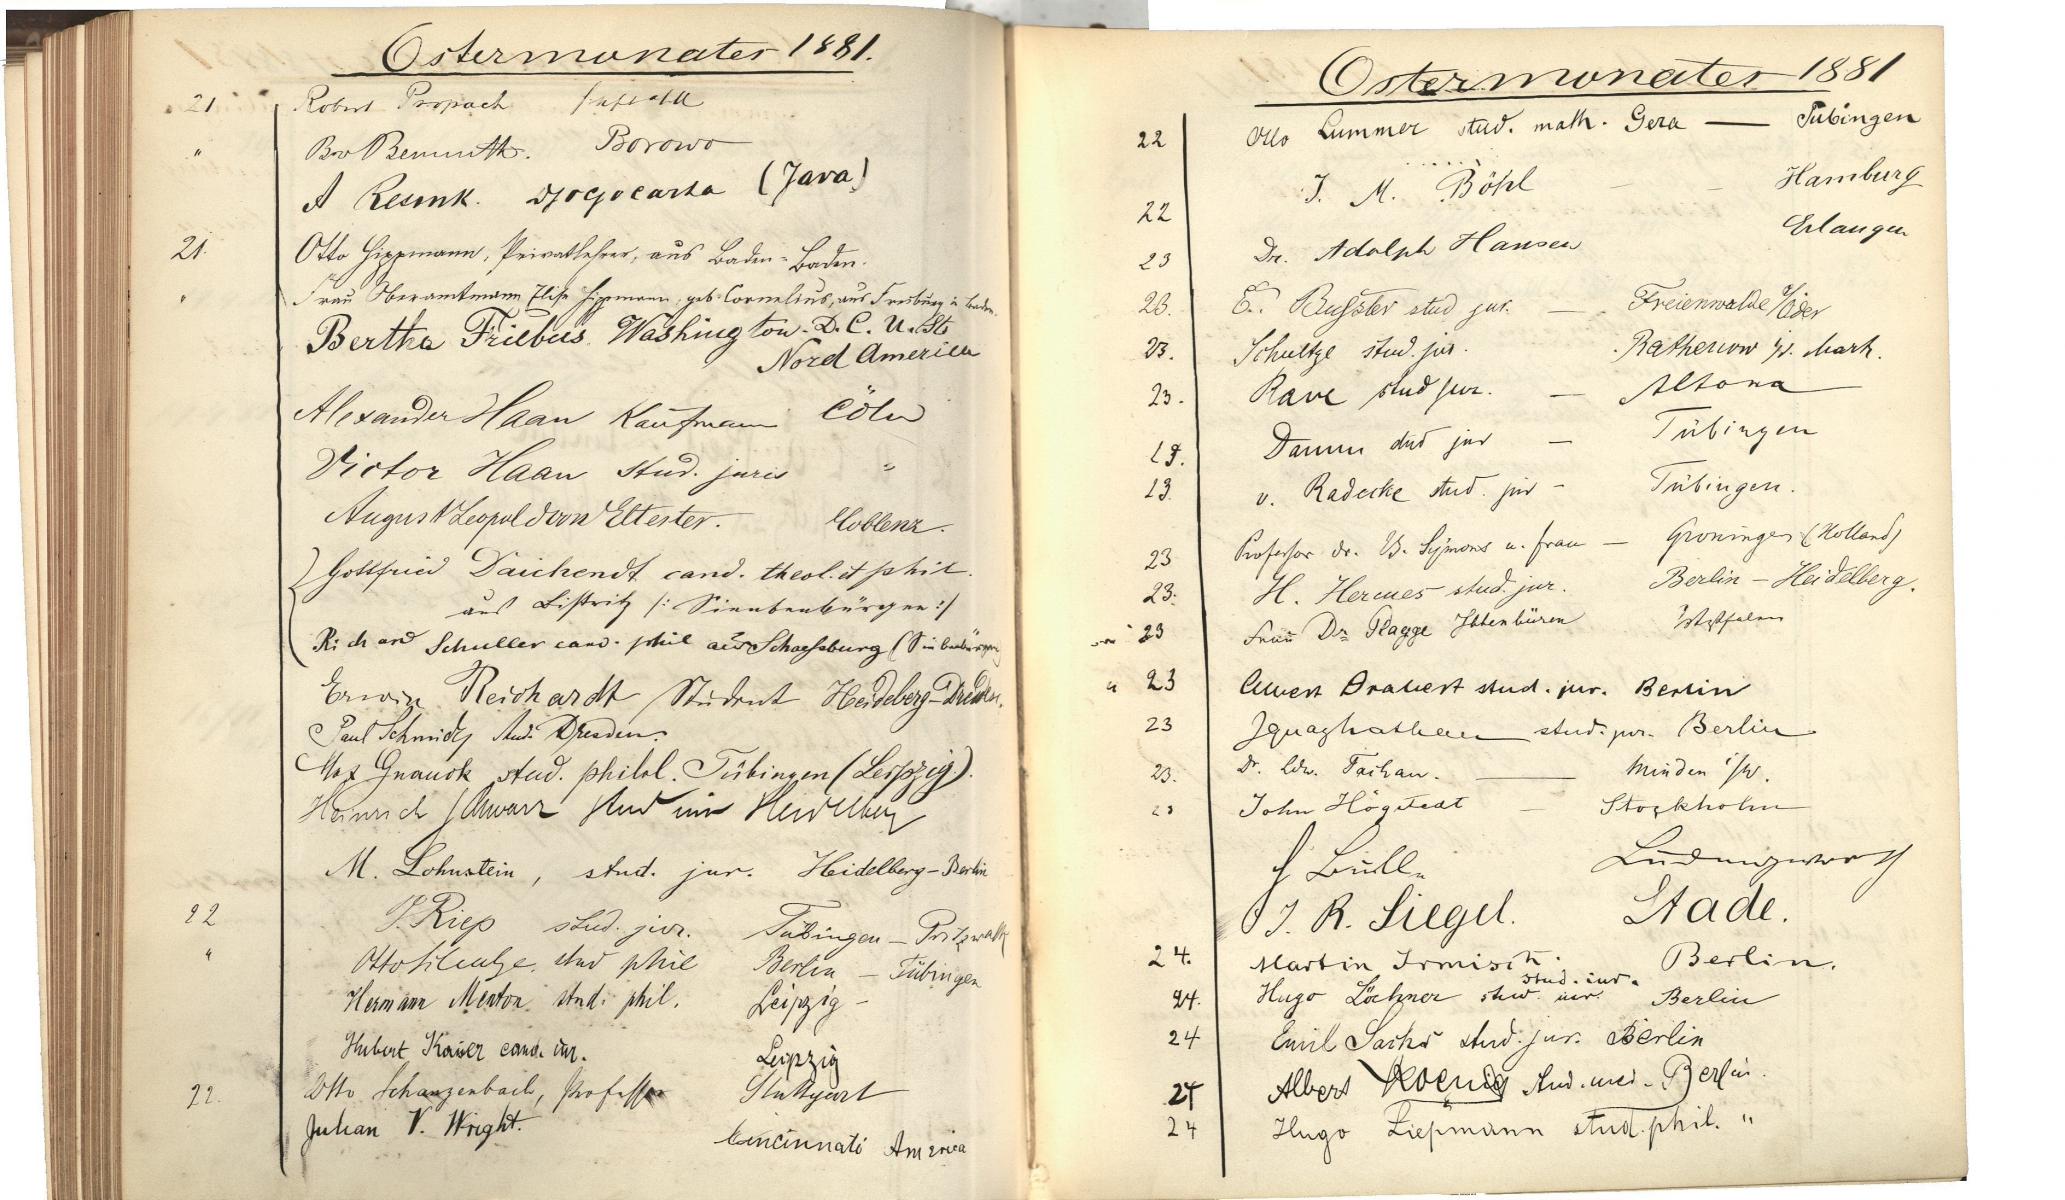 Ostermonater 1881.
21 Robert Propach
" Bemuth. Borowo
A Resink. Djogocarta (Java)
21. Otto Hippmann, Privatlehrer, aus Baden-Baden.
" Frau Oberamtmann Elise Hippmann, geb. Cornelius, aus Freiburg in Baden.
Bertha Friebus. Washington. D. C. U. Sts
Nord America
Alexander Haan Kaufmann Cöln
Victor Haan stud. juris "
August Leopold von Eltester. Coblenz.
Gottfried Daichendt cand. theol. et phil.
aus Bistritz /: Siebenbürgen :/
Richard Schuller cand. phil aus Schaessburg (Siebenbürgen)
Erwin Reichardt Student Heidelberg-Dresden.
Paul Schmidt stud. Dresden.
Max Gnauck stud. philol. Tübingen (Leipzig).
Heinrich Schwarz stud Heidelberg
M. Lohnstein, stud. jur. Heidelberg-Berlin
22 P. Riep stud. jur. Tübingen - Pritzwalk
" Otto stud phil Berlin - Tübingen
Hermann Menton stud. phil. Leipzig -
Hubert Kaiser cand. iur. Leipzig
22. Otto Schanzenbach, Professor Stuttgart
Julian V. Wright. Cincinnati America
Ostermonater 1881
22 Otto Lummer stud. math. Gera — Tübingen
22 J. M. Böhl - - Hamburg
23 Dr. Adolph Hansen Erlangen
23. E. stud jur. — Freienwalde a/Oder
23. Schultze stud. jur. Rathenow i/d. Mark.
23. Rave stud jur. — Altona
19. Damm stud jur — Tübingen
19. v. Radecke stud. jur - Tübingen.
23 Professor dr. B. Symons u. frau — Groningen (Holland)
23. H. Hermes stud. jur. Berlin - Heidelberg.
23 Frau Dr. Plagge Ibbenbüren Westfalen
" 23 Albert Drabert stud. jur. Berlin
23 stud. jur. Berlin
23. Dr. Ldw. — Minden i/W.
23 John Högstedt — Stockholm
J. R. Siegel. Stade.
24. Martin Irmisch. Berlin.
stud. iur.
24. Hugo Löchner stud. iur. Berlin
24 Emil Sachs stud. jur. Berlin
24 Albert Koenig stud. med. Berlin.
24 Hugo Liepmann stud. phil. "